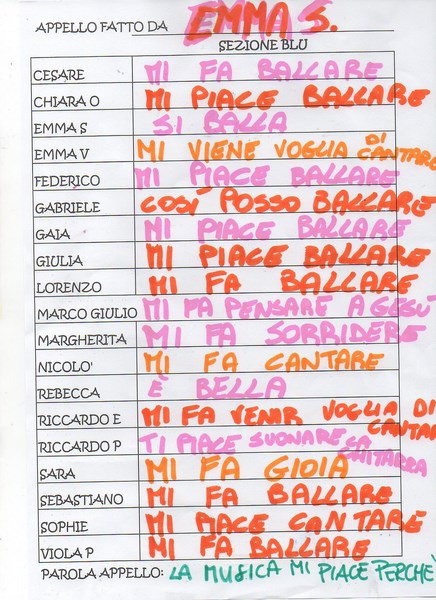 APPELLO FATTO DA EMMA S.
SEZIONE BLU
CESARE MI FA BALLARE
CHIARA O MI PIACE BALLARE
EMMA S SI BALLA
EMMA V MI VIENE VOGLIA DI CANTARE
FEDERICO MI PIACE BALLARE
GABRIELE COSÌ POSSO BALLARE
GAIA MI PIACE BALLARE
GIULIA MI PIACE BALLARE
LORENZO MI FA BALLARE
MARCO GIULIO MI FA PENSARE A GESÙ
MARGHERITA MI FA SORRIDERE
NICOLO' MI FA CANTARE
REBECCA È BELLA
RICCARDO E MI FA VENIR VOGLIA DI CANTAR
RICCARDO P TI PIACE SUONARE LA CHITARRA
SARA MI FA GIOIA
SEBASTIANO MI FA BALLARE
SOPHIE MI PIACE CANTARE
VIOLA P MI FA BALLARE
PAROLA APPELLO: LA MUSICA MI PIACE PERCHÈ